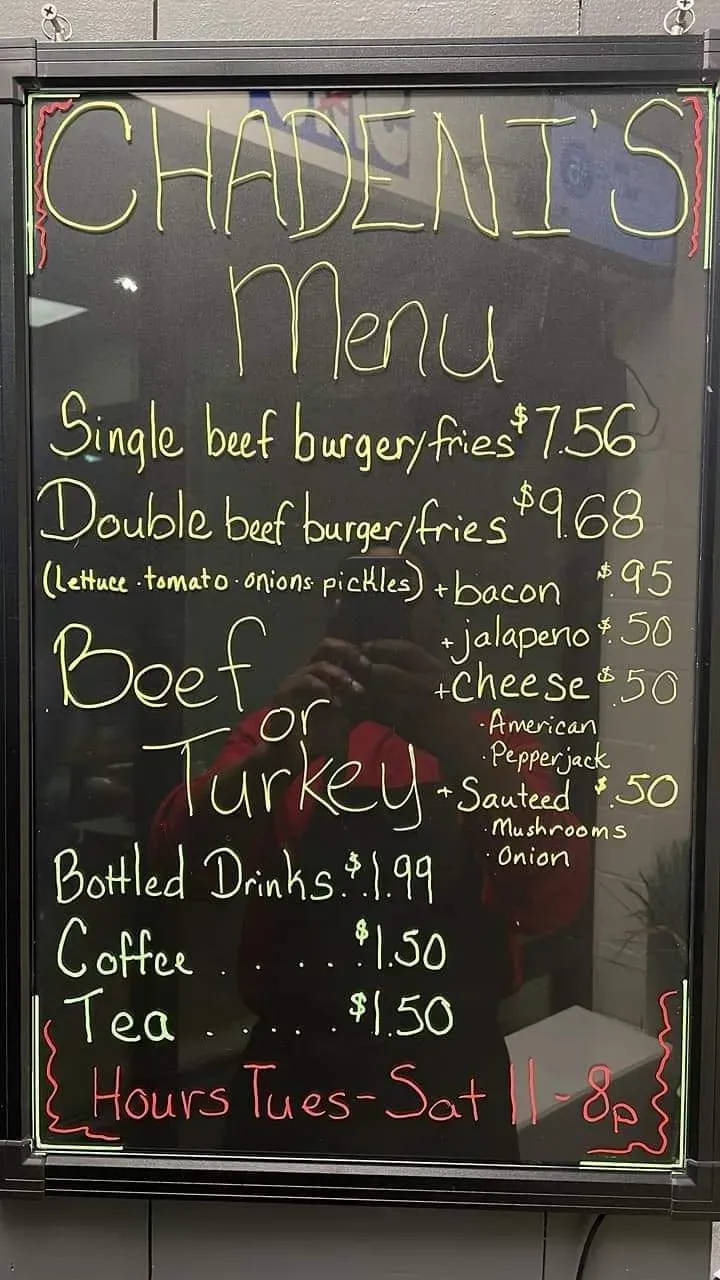 CHADENI'S
Menu
Single beef burger/fries $7.56
Double beef burger/fries $9.68
(Lettuce · tomato · onions · pickles) + bacon $.95
+ jalapeno $.50
+ cheese $.50
· American
· Pepperjack
Beef
or
Turkey
+ Sauteed $.50
· Mushrooms
· Onion
Bottled Drinks. $1.99
Coffee . . . . . $1.50
Tea . . . . . $1.50
Hours Tues-Sat 11-8p